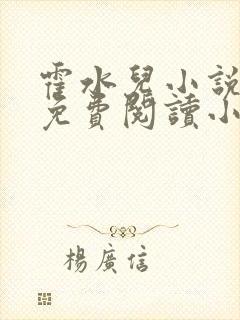 霍水兒小說
免費閱讀小
楊廣信